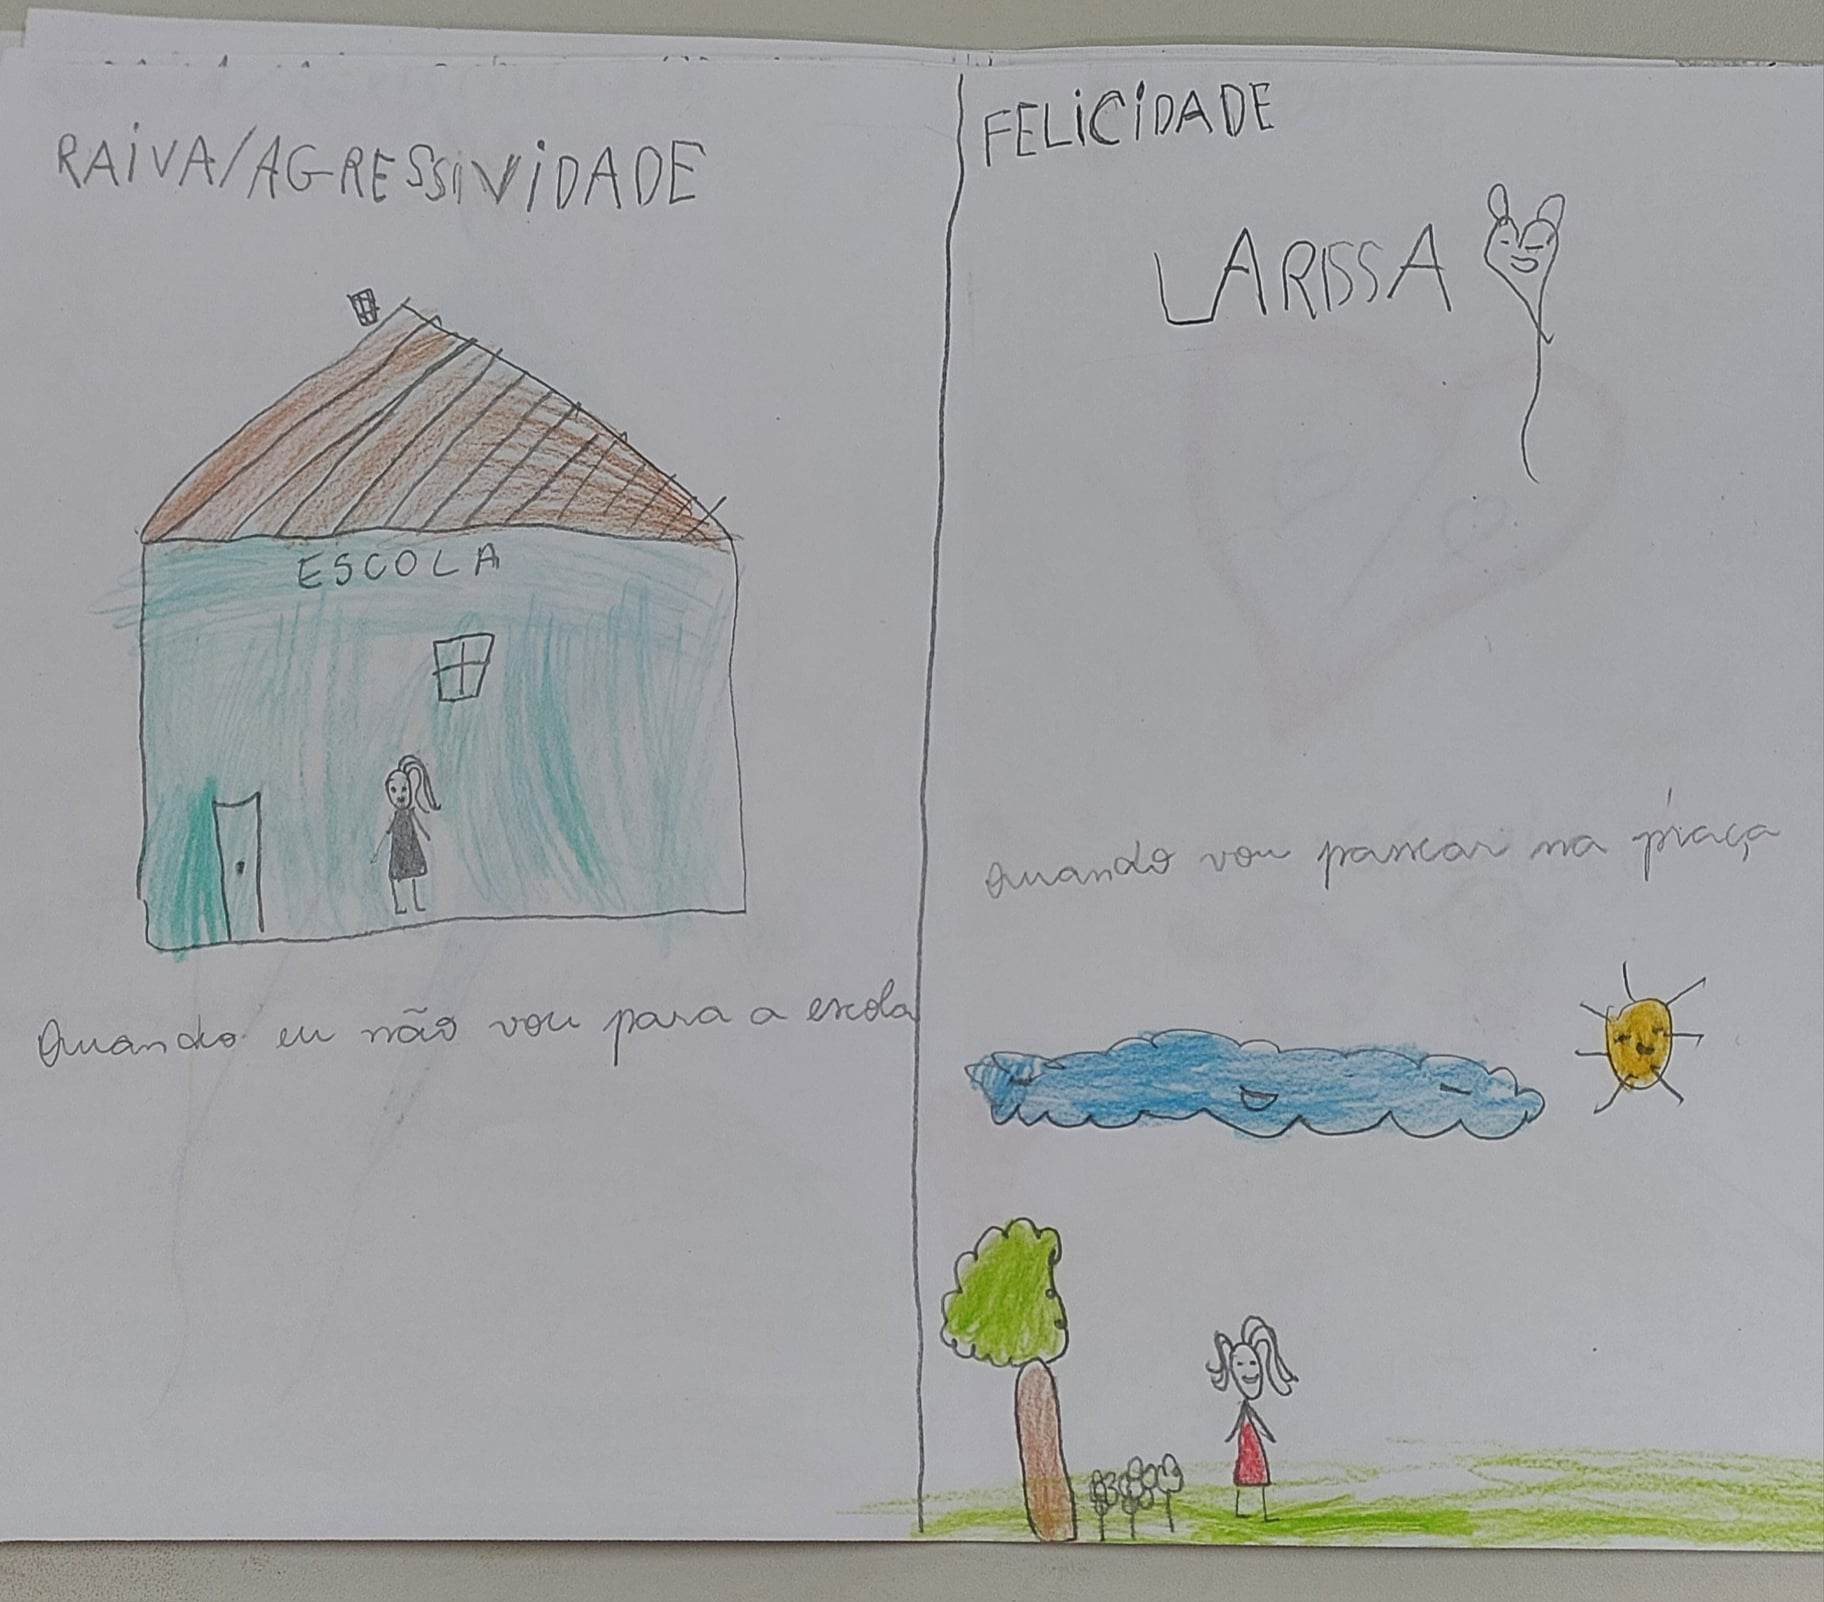 RAiVA/AGRESSiViDADE
ESCOLA
Quando eu não vou para a escola
FELiCiDADE
LARISSA
Quando vou passear na praça